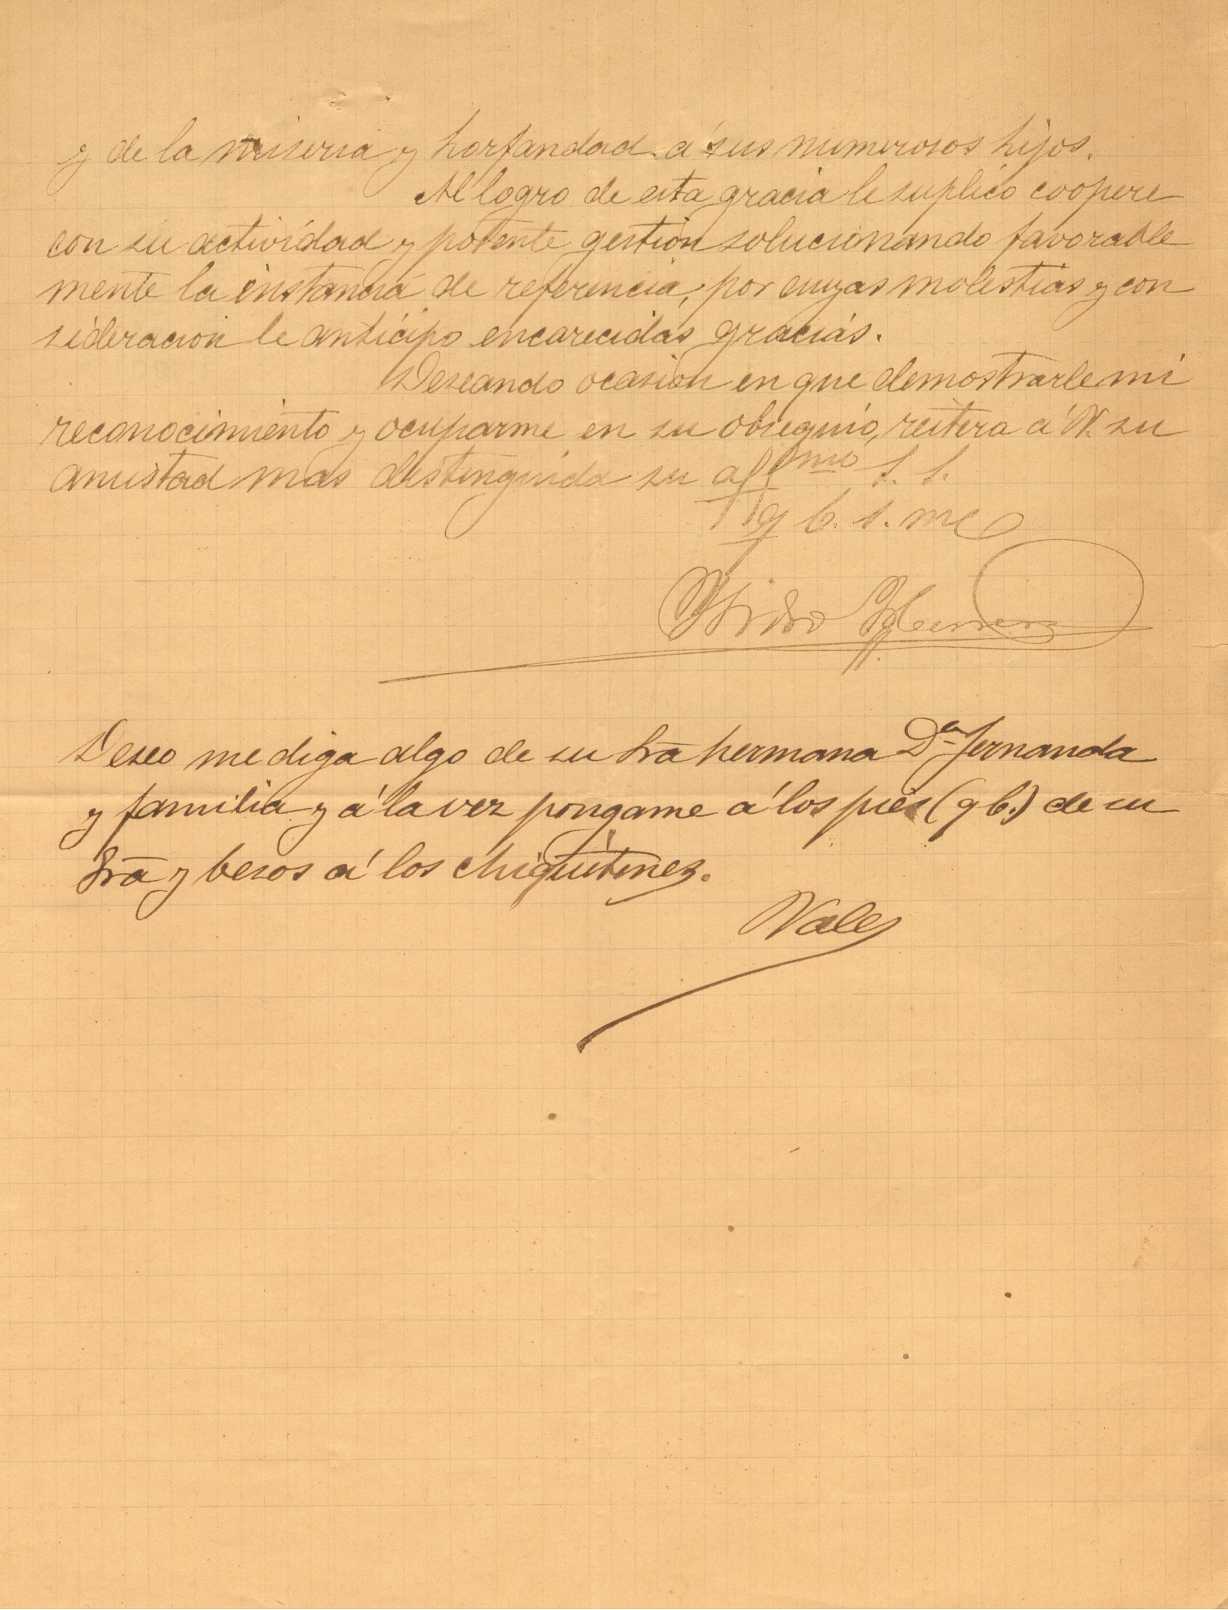 y de la miseria y horfandad á sus numerosos hijos.
Al logro de esta gracia le suplico coopere
con su actividad y potente gestión solucionando favorable
mente la instancia de referencia, por cuyas molestias y con
sideración le anticipo encarecidas gracias.
Deseando ocasión en que demostrarle mi
reconocimiento y ocuparme en su obsequio, reitera á V. su
amistad mas distinguida su affmo S. S.
q b. s. m
Isidro
Deseo me diga algo de su Sra hermana Da Fernanda
y familia y á la vez pongame á los pies (q b.) de su
Sra y besos á los chiquitines.
Vale